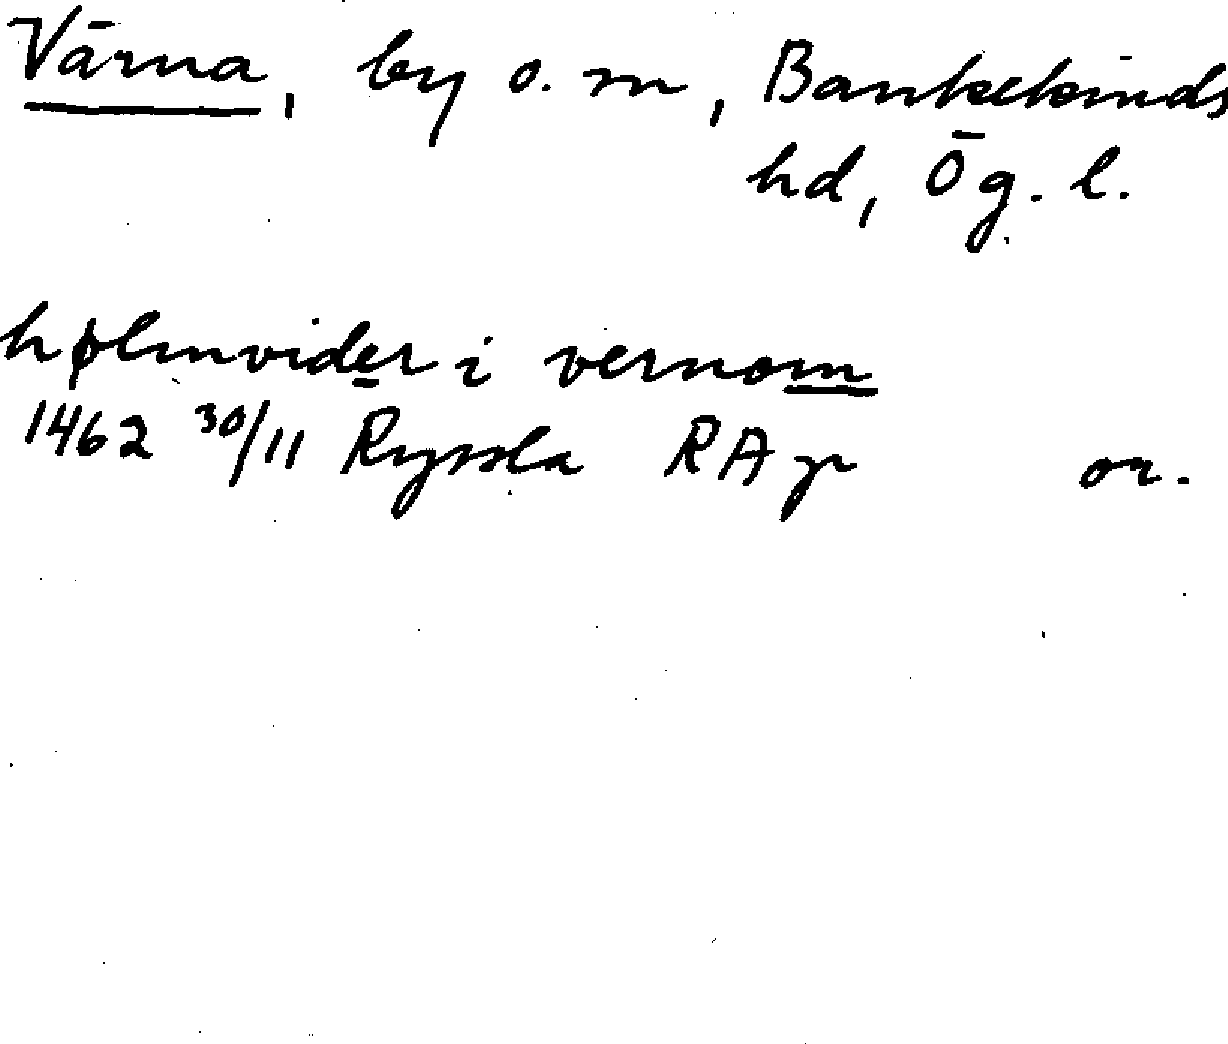 Värna, by o. sn, Bankekinds
hd, Ög. l.
hølmvider i vernom
1462 30/11 Ryssla RA p or.